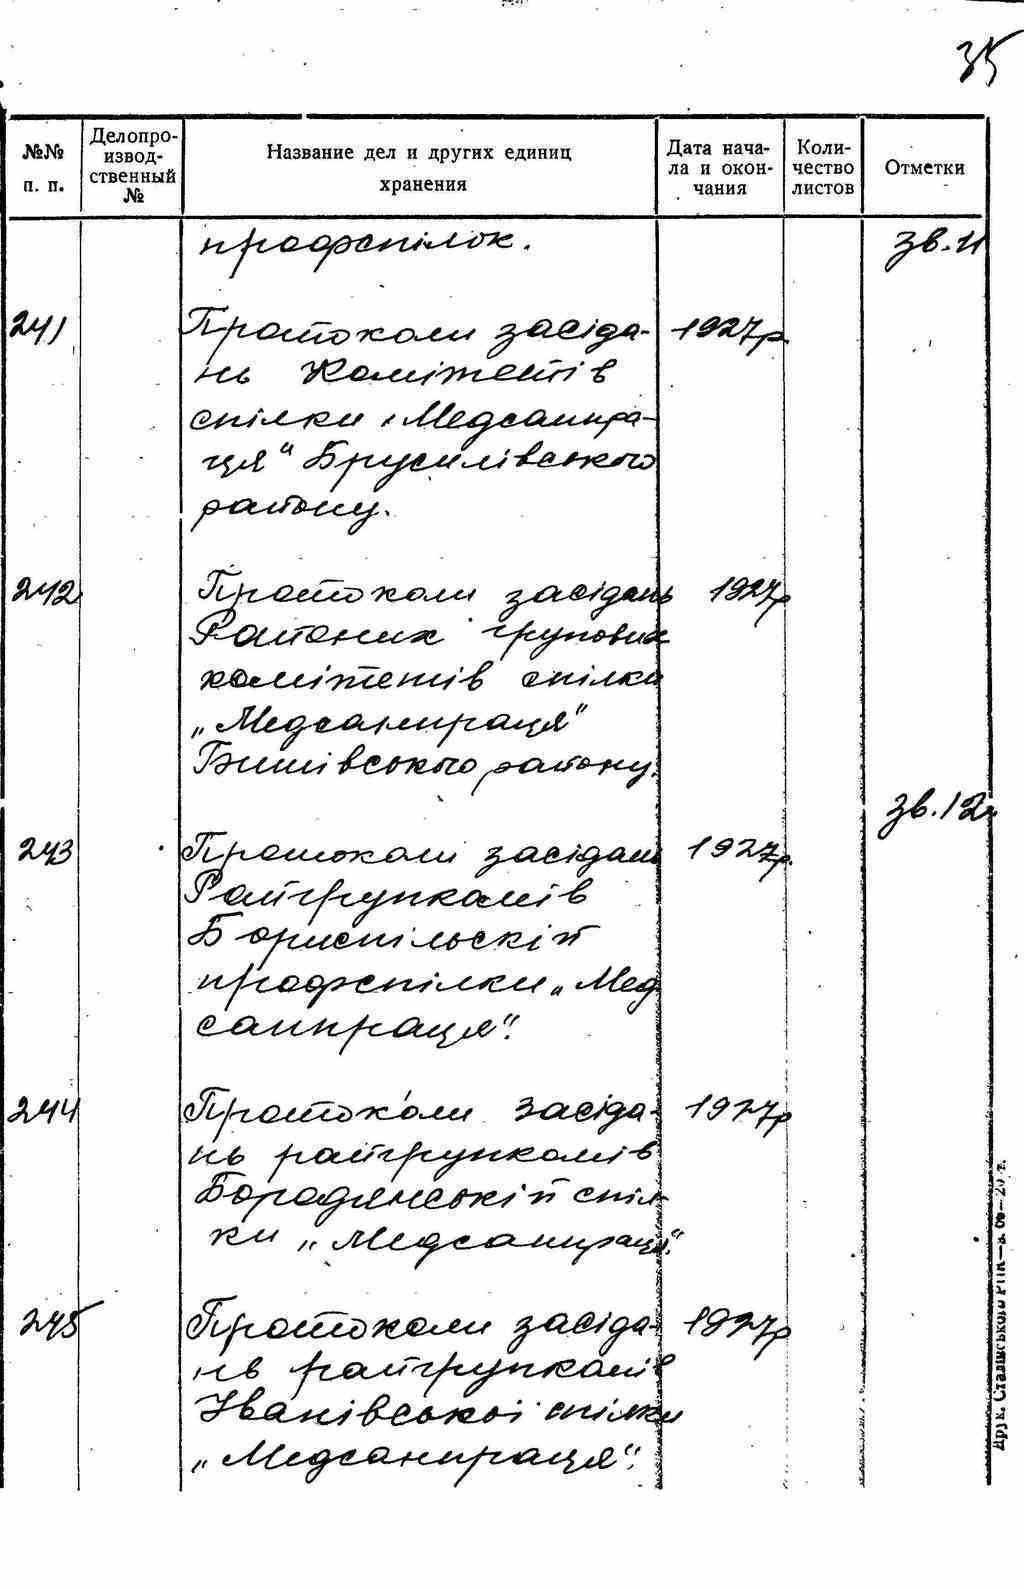 35
№№ п. п.
Делопро-
извод-
ственный
№
Название дел и других единиц
хранения
Дата нача-
ла и окон-
чания
Коли-
чество
листов
Отметки
профспілок. зв. 11
241 Протоколи засіда- 1927р.
нь Комітетів
спілки „Медсанпра-
ця“ Брусилівського
району.
242 Протоколи засідань 1927р
Районих групових
комітетів спілки
„Медсанпраця“
Бишівського району.
зв. 12
243 Протоколи засідань 1927р.
Райгрупкомів
Бориспільскій
профспілки „Мед
санпраця“.
244 Протоколи засіда- 1927р
нь райгрупкомів
Бородянській спіл
ки „Медсанпраця“.
245 Протоколи засіда- 1927р
нь райгрупкомів
Іванівської спілки
„Медсанпраця“.
Друк. Сталінського